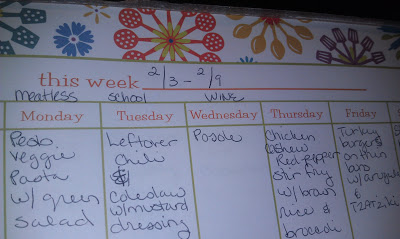 this week 2/3 - 2/9
meatless school WINE
Monday Tuesday Wednesday Thursday Friday
Pesto
veggie
Pasta
w/ green
salad
Leftover
Chili
&
Coleslaw
w/mustard
dressing
Posole
Chicken
Cashew
Red pepper
stir fry
w/ brown
rice &
broccoli
Turkey
burgers
on thin
buns
w/ arugula
&
TZATZiki